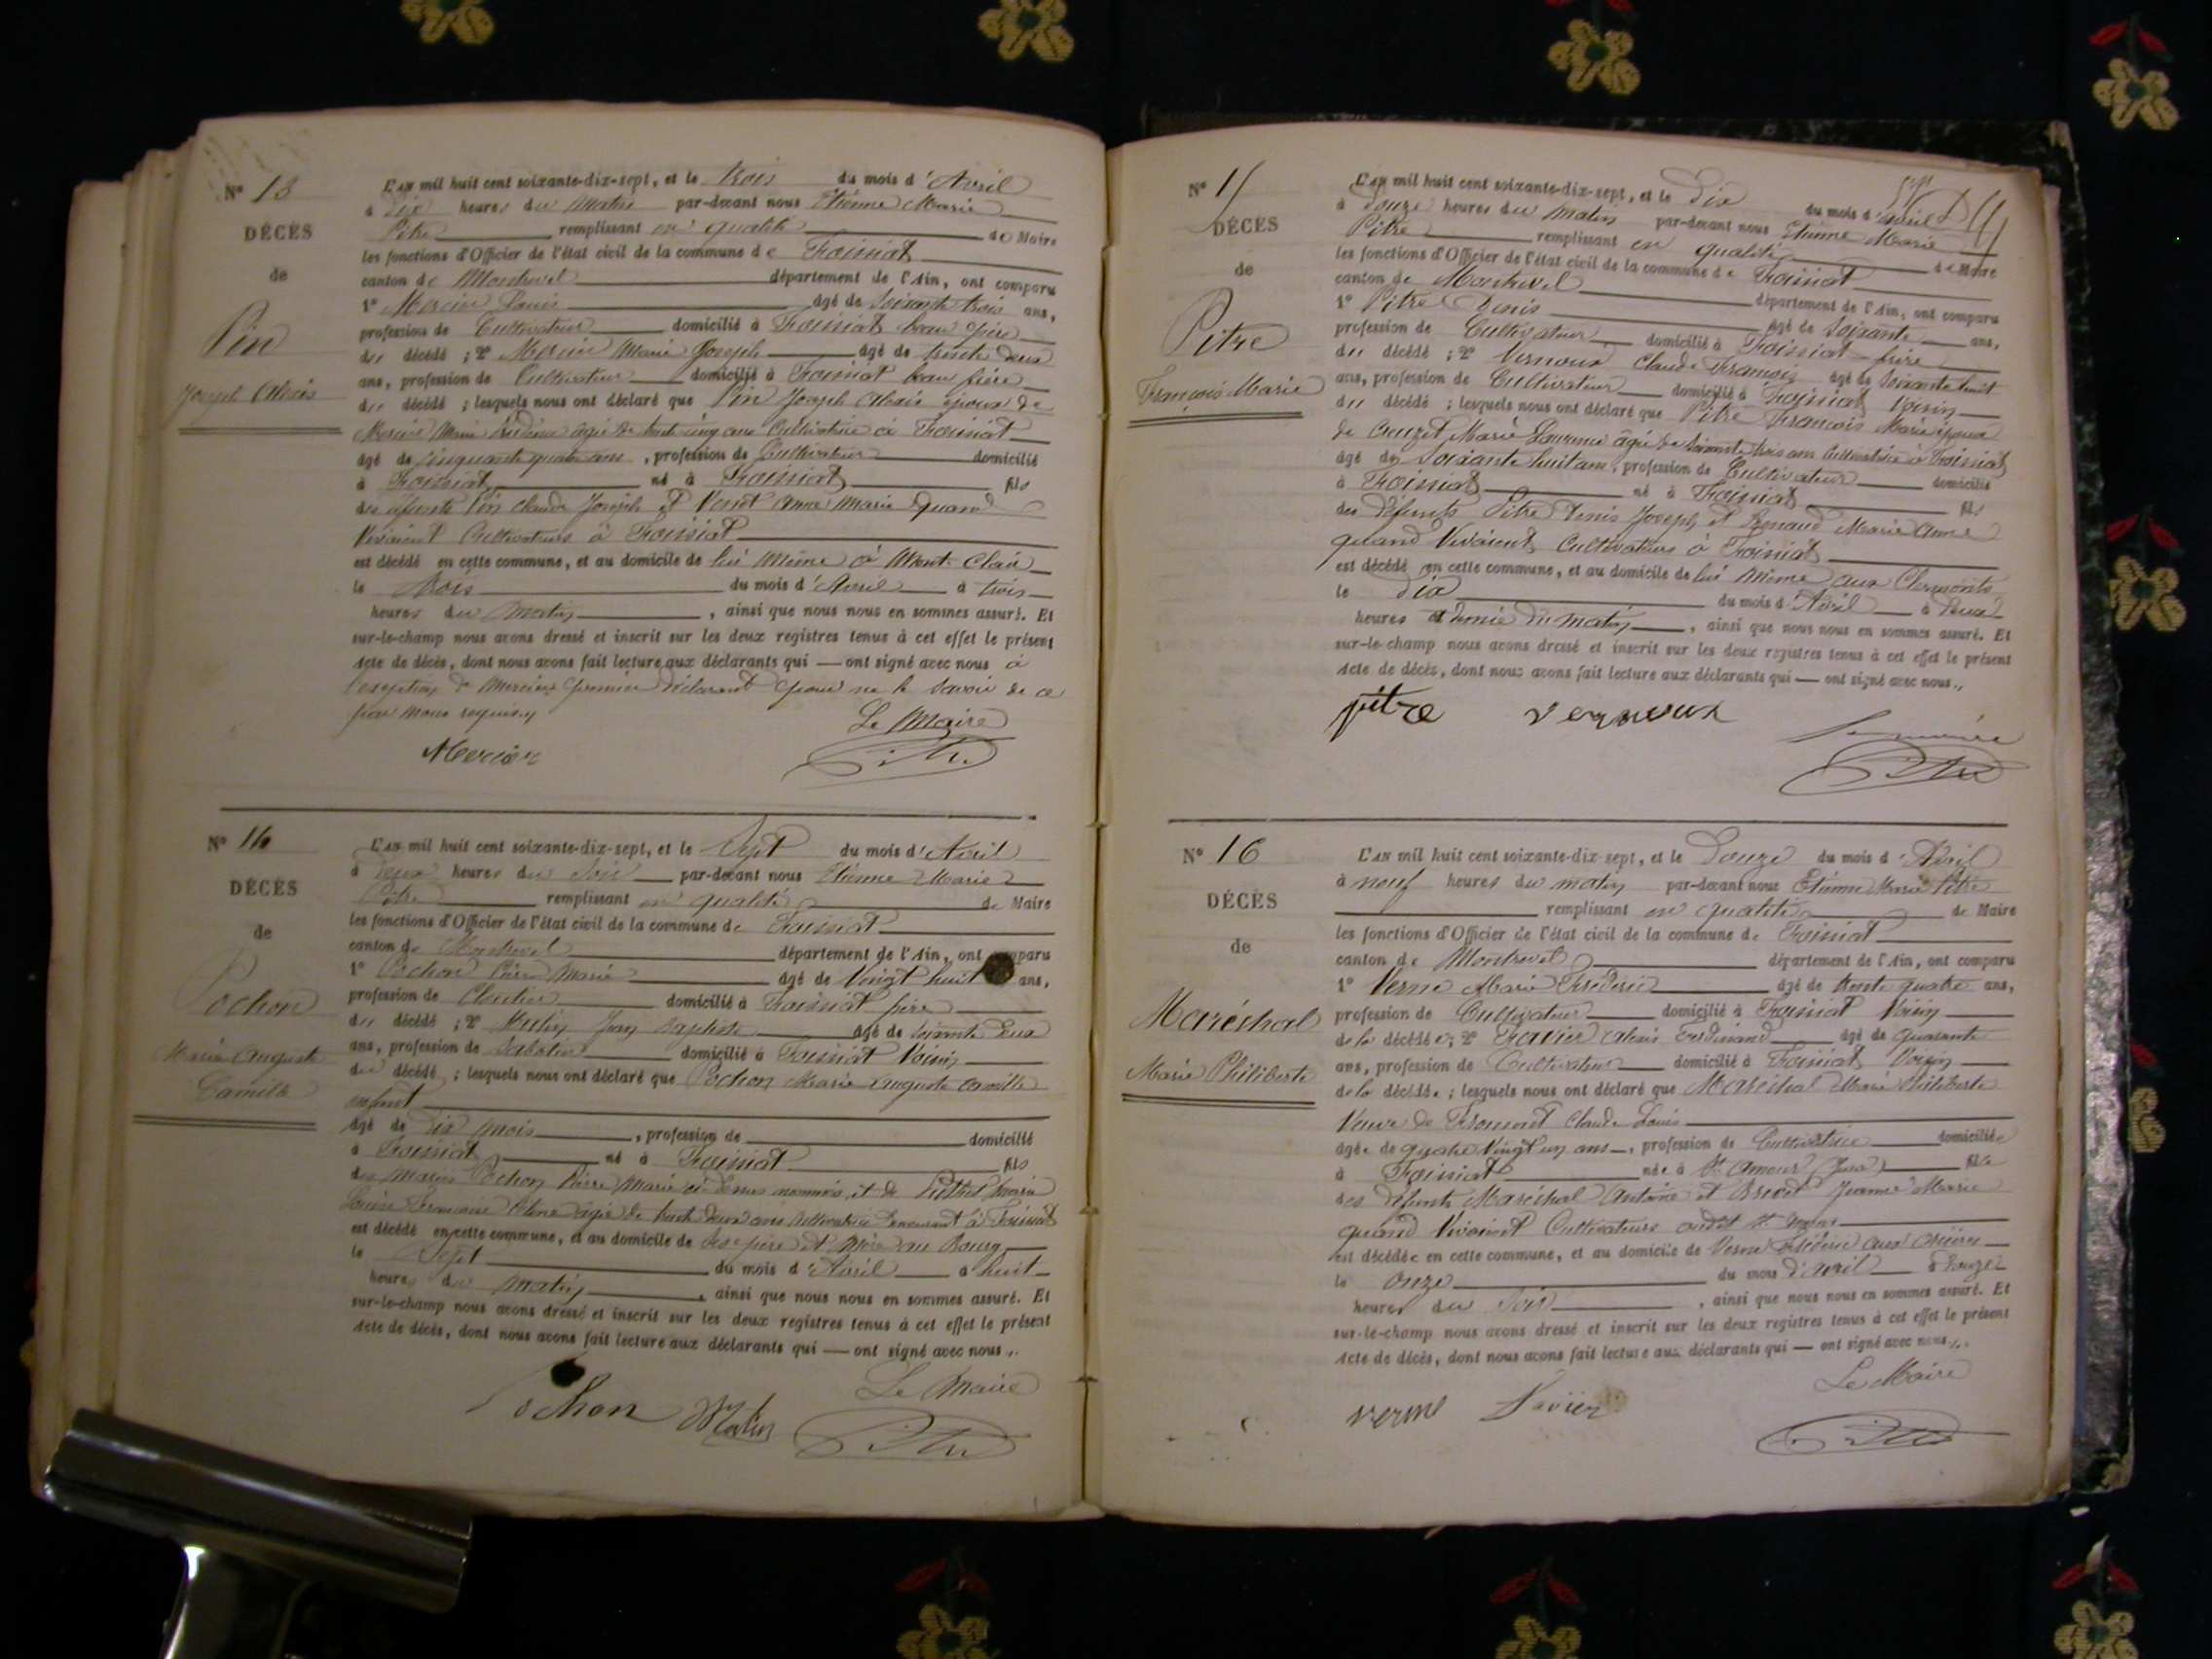 N° 13
DÉCÈS
de
Pin
Joseph Alexis
L'AN mil huit cent soixante-dix-sept, et le trois du mois d'Avril
à Dix heures du Matin par-devant nous Etienne Marie
Pitre remplissant en qualité de Maire
les fonctions d'Officier de l'état civil de la commune de Foissiat
canton de Montrevel département de l'Ain, ont comparu
1° Mercier Louis âgé de Soixante trois ans,
profession de Cultivateur domicilié à Foissiat beau père
du décédé ; 2° Mercier Marie Joseph âgé de trente deux
ans, profession de Cultivateur domicilié à Foissiat beau frère
du décédé ; lesquels nous ont déclaré que Pin Joseph Alexis époux de
Mercier Marie âgée de trente cinq ans Cultivatrice à Foissiat
âgé de Cinquante quatre ans, profession de Cultivateur domicilié
à Foissiat né à Foissiat fils
des défunts Pin Claude Joseph et Anne Marie quand
Vivaient Cultivateurs à Foissiat
est décédé en cette commune, et au domicile de lui Même à Mont-Clair
le trois du mois d'Avril à trois
heures du matin, ainsi que nous nous en sommes assuré. Et
sur-le-champ nous avons dressé et inscrit sur les deux registres tenus à cet effet le présent
Acte de décès, dont nous avons fait lecture aux déclarants qui — ont signé avec nous à
l'exception de Mercier premier déclarant pour ne le savoir de ce
par Nous requis
Le Maire
Mercier Pitre
N° 14
DÉCÈS
de
Pochon
Marie Auguste
Camille
L'AN mil huit cent soixante-dix-sept, et le Sept du mois d'Avril
à Deux heures du Soir par-devant nous Etienne Marie
Pitre remplissant en qualité de Maire
les fonctions d'Officier de l'état civil de la commune de Foissiat
canton de Montrevel département de l'Ain, ont comparu
1° Pochon Pierre Marie âgé de Vingt huit ans,
profession de Cloutier domicilié à Foissiat père
du décédé ; 2° Jean Baptiste âgé de soixante Deux
ans, profession de Sabotier domicilié à Foissiat Voisin
du décédé ; lesquels nous ont déclaré que Pochon Marie Auguste Camille
enfant
âgé de dix mois, profession de domicilié
à Foissiat né à Foissiat fils
des mariés Pochon Pierre Marie ci-dessus nommé, et de Marie
Louise âgée de trente deux ans Cultivatrice demeurant à Foissiat
est décédé en cette commune, et au domicile de Ses père et Mère au Bourg
le Sept du mois d'Avril à huit
heures du matin, ainsi que nous nous en sommes assuré. Et
sur-le-champ nous avons dressé et inscrit sur les deux registres tenus à cet effet le présent
Acte de décès, dont nous avons fait lecture aux déclarants qui — ont signé avec nous.
Le Maire
Pochon Pitre
N° 15
DÉCÈS
de
Pitre
François Marie
L'AN mil huit cent soixante-dix-sept, et le Dix du mois d'Avril
à Douze heures du Matin par-devant nous Etienne Marie
Pitre remplissant en qualité de Maire
les fonctions d'Officier de l'état civil de la commune de Foissiat
canton de Montrevel département de l'Ain, ont comparu
1° Pitre Denis âgé de Soixante ans,
profession de Cultivateur domicilié à Foissiat frère
du décédé ; 2° Vernoux Claude François âgé de Soixante huit
ans, profession de Cultivateur domicilié à Foissiat Voisin
du décédé ; lesquels nous ont déclaré que Pitre François Marie époux
de Marie Laurence âgée de Soixante trois ans Cultivatrice à Foissiat
âgé de Soixante huit ans, profession de Cultivateur domicilié
à Foissiat né à Foissiat fils
des Défunts Pitre Denis Joseph et Renaud Marie Anne
quand Vivaient Cultivateurs à Foissiat
est décédé en cette commune, et au domicile de lui Même aux
le Dix du mois d'Avril à Deux
heures et demie du matin, ainsi que nous nous en sommes assuré. Et
sur-le-champ nous avons dressé et inscrit sur les deux registres tenus à cet effet le présent
Acte de décès, dont nous avons fait lecture aux déclarants qui — ont signé avec nous.
pitre vernoux
Le maire
Pitre
N° 16
DÉCÈS
de
Maréchal
Marie Philiberte
L'AN mil huit cent soixante-dix-sept, et le Douze du mois d'Avril
à neuf heures du matin par-devant nous Etienne Marie Pitre
remplissant en qualité de Maire
les fonctions d'Officier de l'état civil de la commune de Foissiat
canton de Montrevel département de l'Ain, ont comparu
1° Verne Marie Frédéric âgé de trente quatre ans,
profession de Cultivateur domicilié à Foissiat Voisin
de la décédée ; 2° Alexis Ferdinand âgé de quarante
ans, profession de Cultivateur domicilié à Foissiat Voisin
de la décédée ; lesquels nous ont déclaré que Maréchal Marie Philiberte
Veuve de Claude Louis
âgée de quatre Vingt un ans, profession de Cultivatrice domiciliée
à Foissiat née à St Amour (Jura) fille
des défunts Maréchal Antoine et Jeanne Marie
quand Vivaient Cultivateurs audit St Amour
est décédée en cette commune, et au domicile de Verne Frédéric aux
le onze du mois d'avril à onze
heures du Soir, ainsi que nous nous en sommes assuré. Et
sur-le-champ nous avons dressé et inscrit sur les deux registres tenus à cet effet le présent
Acte de décès, dont nous avons fait lecture aux déclarants qui — ont signé avec nous.
Le Maire
verne Pitre